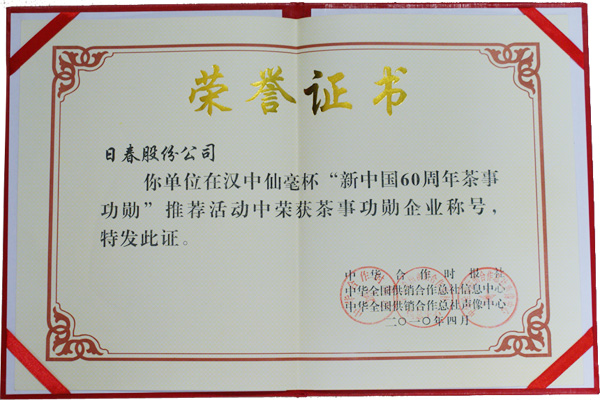 荣誉证书
日春股份公司
你单位在汉中仙毫杯“新中国60周年茶事
功勋”推荐活动中荣获茶事功勋企业称号，
特发此证。
中华合作时报社
中华全国供销合作总社信息中心
中华全国供销合作总社声像中心
二〇一〇年四月